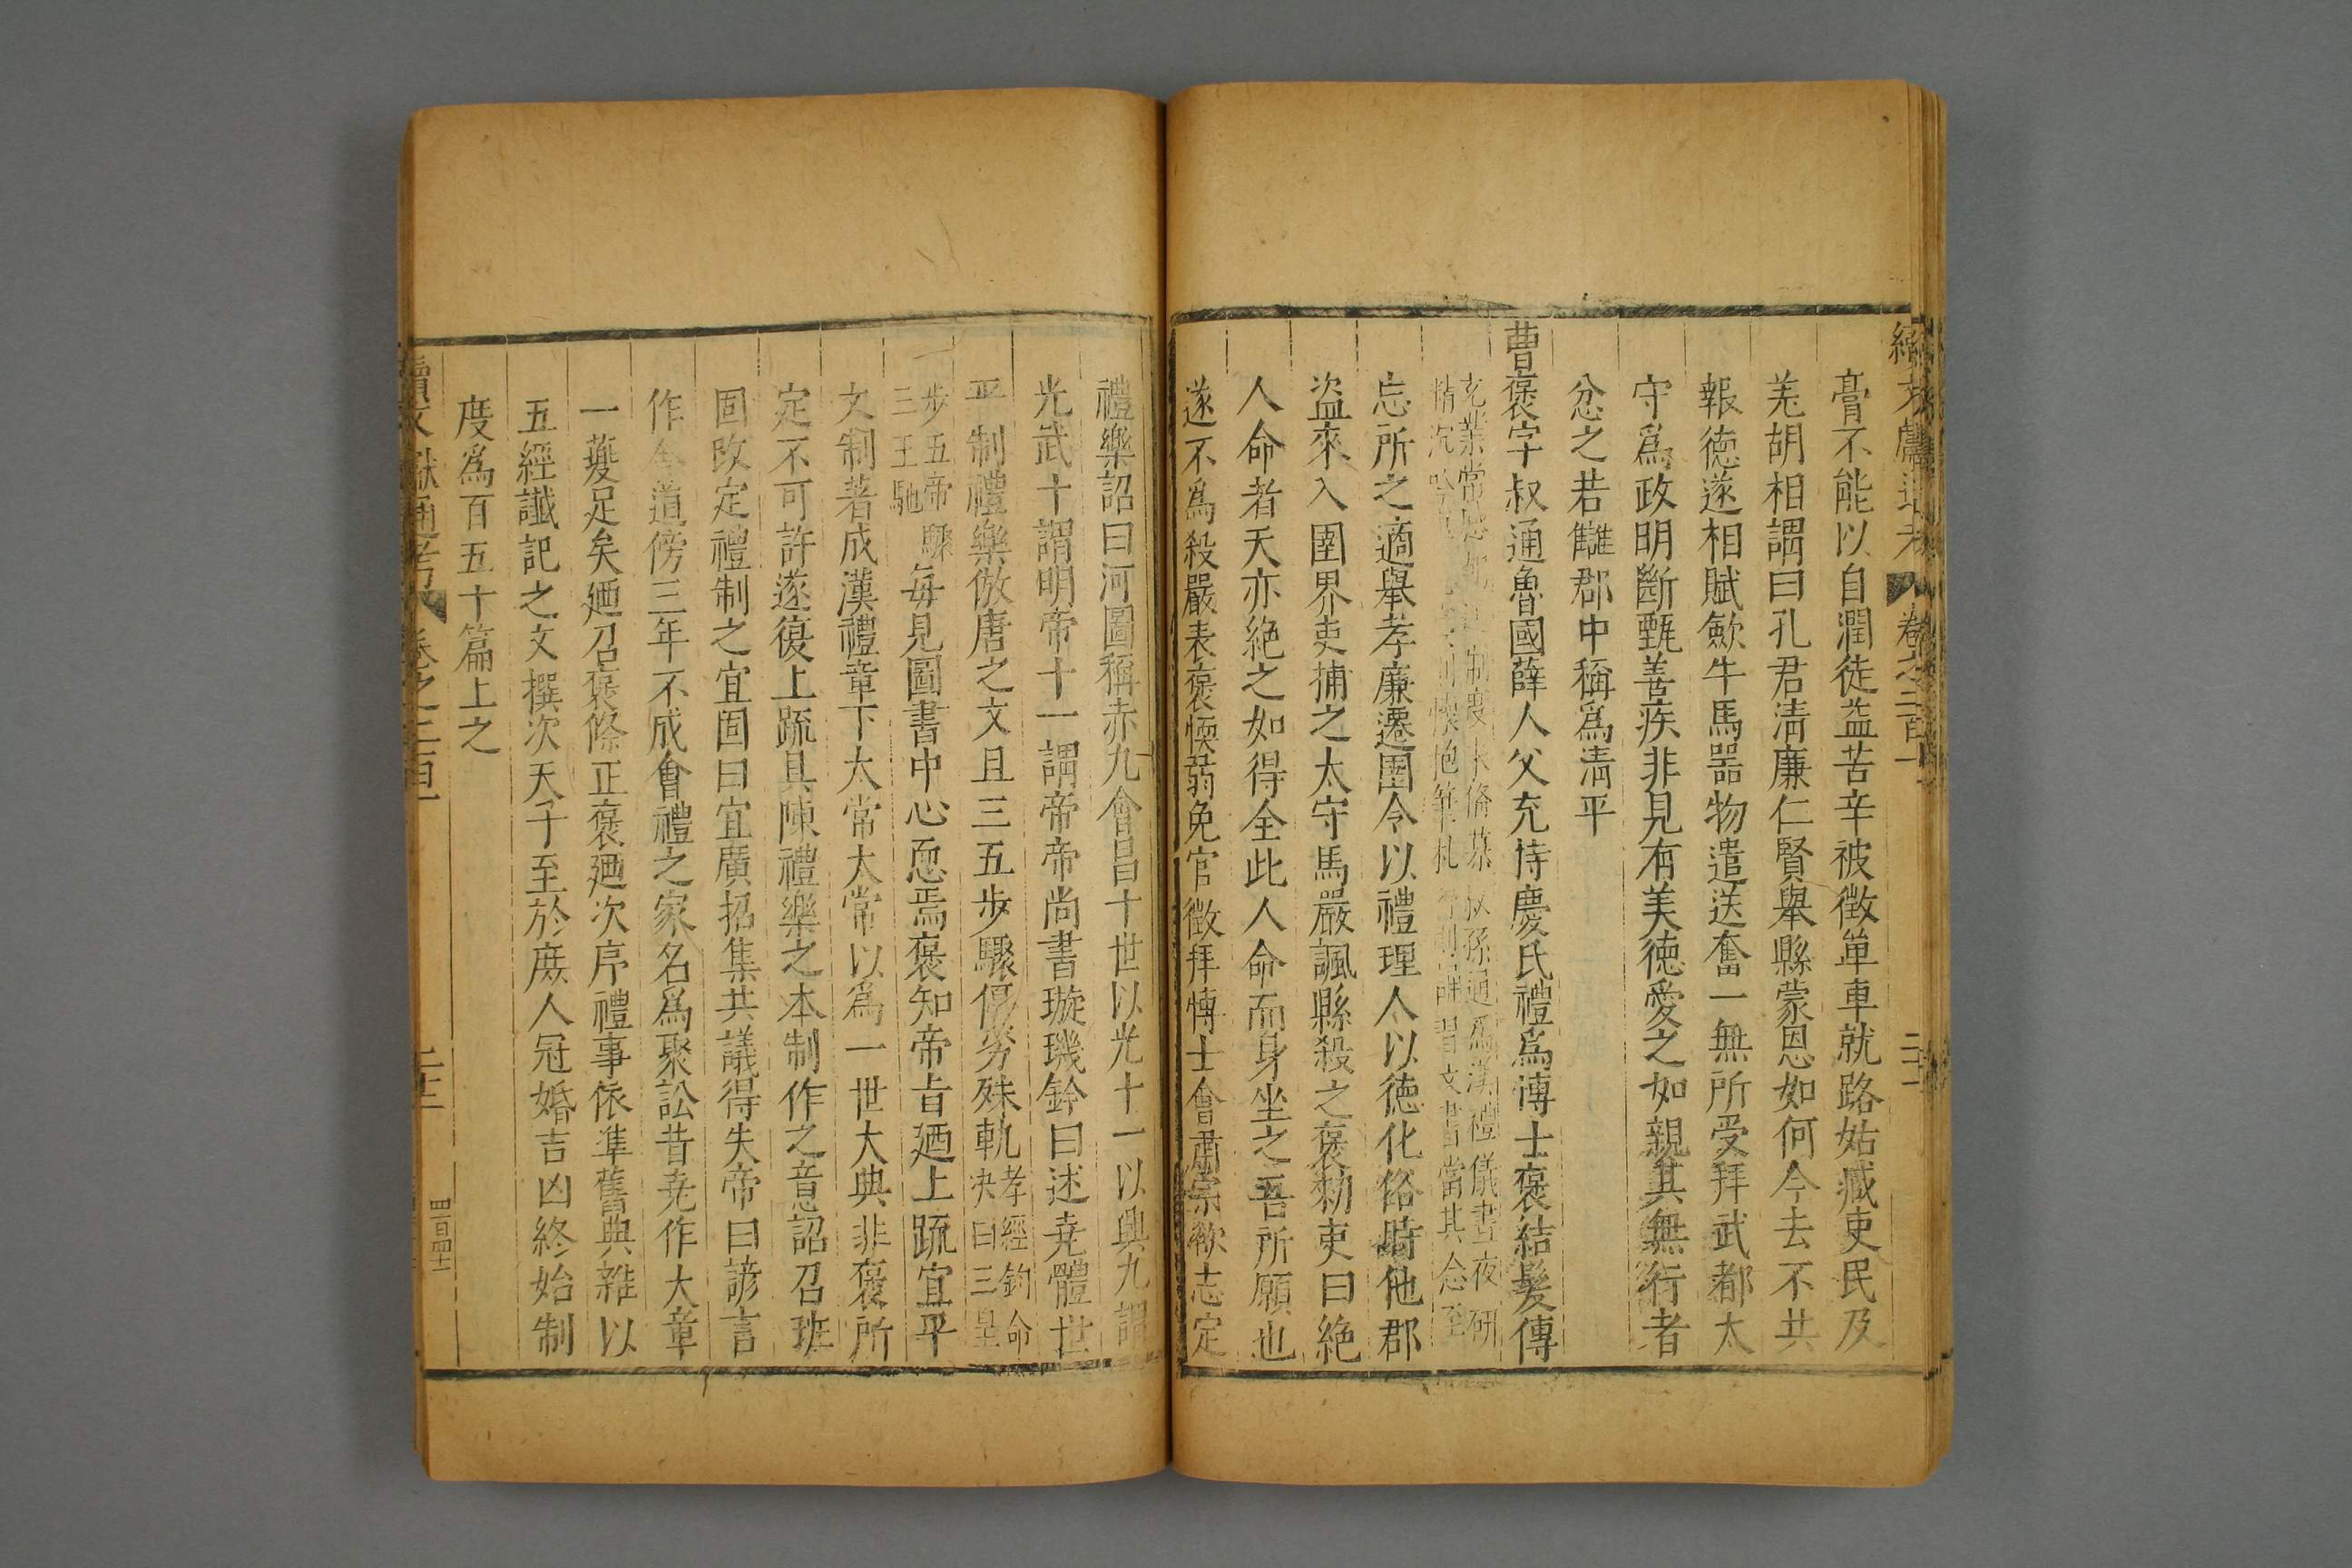 續文獻通考 卷之二百一
膏不能以自潤徒益苦辛被徵單車就路姑臧吏民及
羌胡相謂曰孔君清廉仁賢舉縣蒙恩如何今去不共
報德遂相賦歛牛馬噐物遣送奮一無所受拜武都太
守爲政明斷甄善疾非見有美德愛之如親其無行者
忿之若讎郡中稱爲淸平
曹褒字叔通魯國薛人父充持慶氏禮爲博士褒結髮傳
充業常感朝制度未備慕叔孫通爲漢禮儀晝夜研
精沉吟則懷抱筆札行則誦習文書當其念至
忘所之適舉孝廉遷圉令以禮理人以德化俗時他郡
盜來入圉界吏捕之太守馬嚴諷縣殺之褒勑吏曰絶
人命者天亦絕之如得全此人命而身坐之吾所願也
遂不爲殺嚴表褒愞弱免官徵拜博士會肅宗欲志定
禮樂詔曰河圖稱赤九會昌十世以光十一以興九謂
光武十謂明帝十一謂帝帝尚書璇璣鈐曰述堯體世
平制禮樂倣唐之文且三五步驟優劣殊軌孝經鈞命決曰三皇
步五帝驟三王馳每見圖書中心恧焉褒知帝旨廼上䟽宜平
文制著成漢禮章下太常太常以爲一世大典非褒所
定不可許遂復上䟽具陳禮樂之本制作之意詔召班
固改定禮制之宜固曰宜廣招集共議得失帝曰諺言
作舍道傍三年不成會禮之家名爲聚訟昔堯作大章
一䕫足矣廼召褒條正褒廼次序禮事依凖舊典雜以
五經讖記之文撰次天子至於庶人冠婚吉凶終始制
度爲百五十篇上之
續文獻通考 卷之二百一